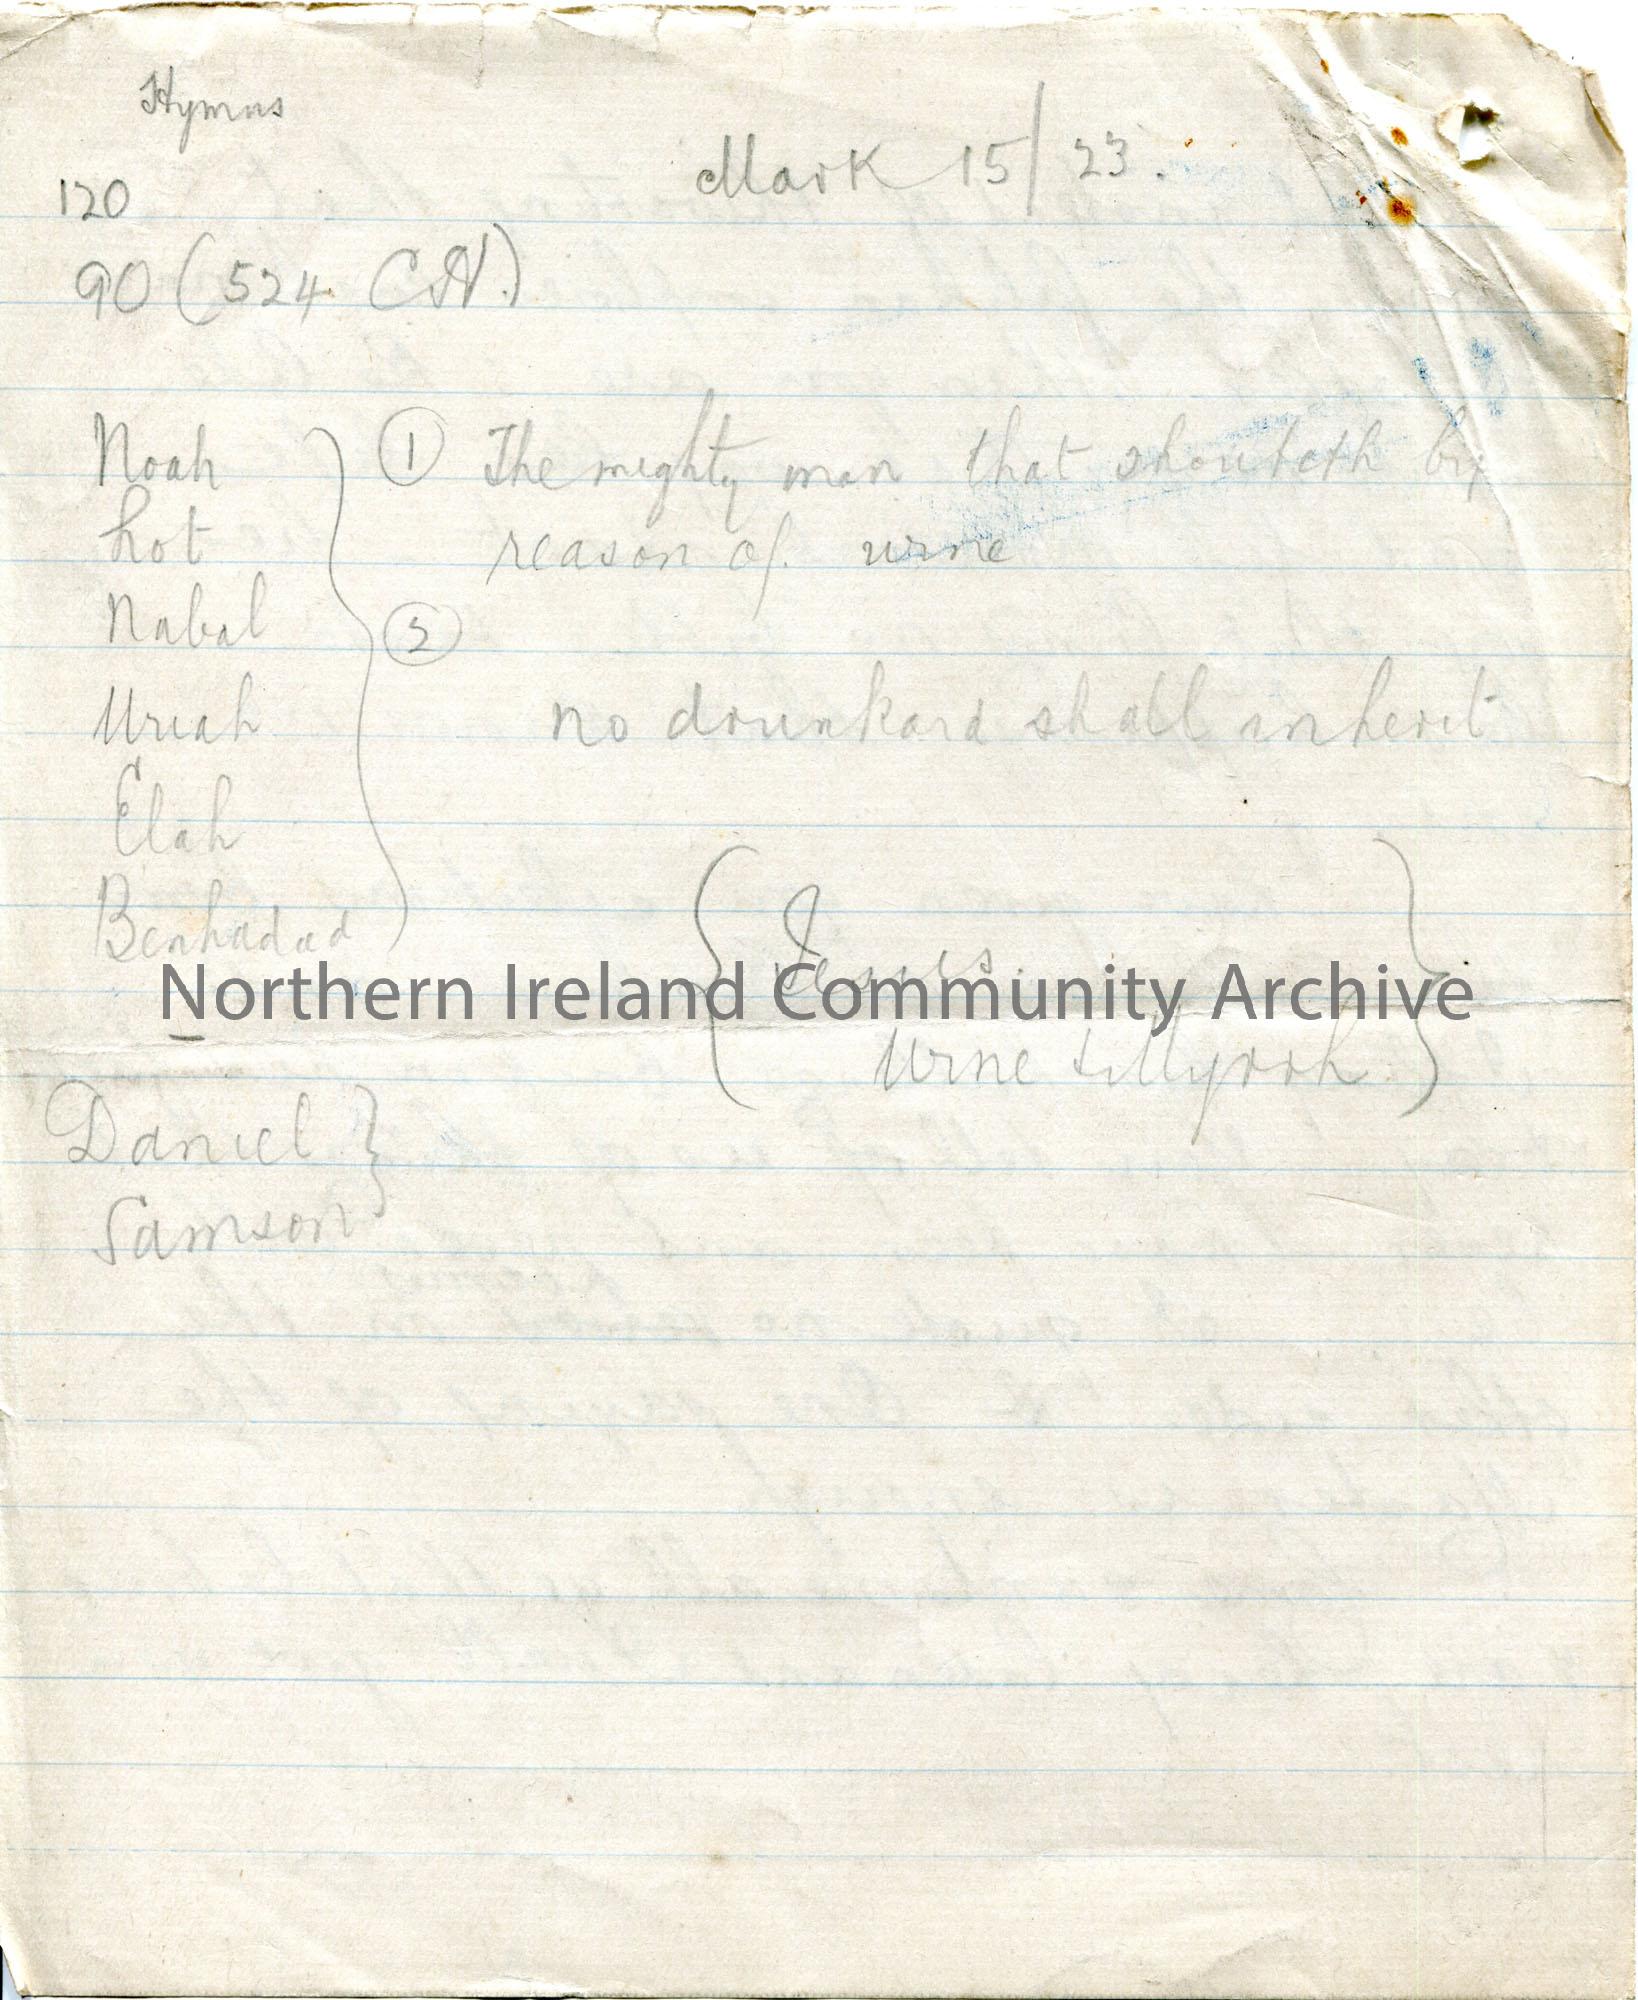 Hymns
Mark 15/23.
120
90 (524 CH.)
Noah
Lot
Nabal
Uriah
Elah
Benhadad
① The mighty man that shouteth by
reason of wine
②
no drunkard shall inherit
Jesus.
Wine & Myrrh.
Northern Ireland Community Archive
Daniel
Samson